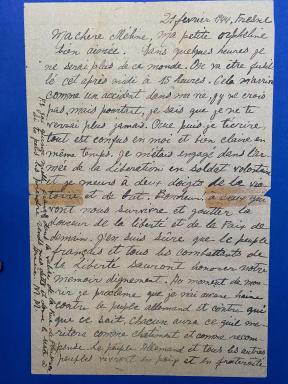 21 février 1944, Fresne
Ma chère Mélinée, ma petite orpheline
bien aimée. Dans quelques heures je
ne serai plus de ce monde. On va être fusillé
cet après midi à 15 heures. Cela m'arrive
comme un accident dans ma vie, j'y ne crois
pas, mais pourtant, je sais que je ne te
verrai plus jamais. Que puis-je t'écrire,
tout est confus en moi et bien claire en
même temps. Je m'étais engagé dans l'ar
mée de la Libération en soldat volontaire
et je meurs à deux doigts de la vic
toire et de but. Bonheur à ceux qui
vont nous survivre et goutter la
douceur de la liberté et de la Paix de
demain. J'en suis sûre que le peuple
français et tous les combattants de
la Liberté sauront honorer notre
mémoire dignement. Au moment de mou
rir je proclame que je n'ai aucune haine
contre le peuple allemand et contre qui
que ce soit. Chacun aura ce qu'il mé
ritera comme châtiment et comme recom
pense. Le peuple Allemand et tous les autres
peuples vivront en paix et en fraternité